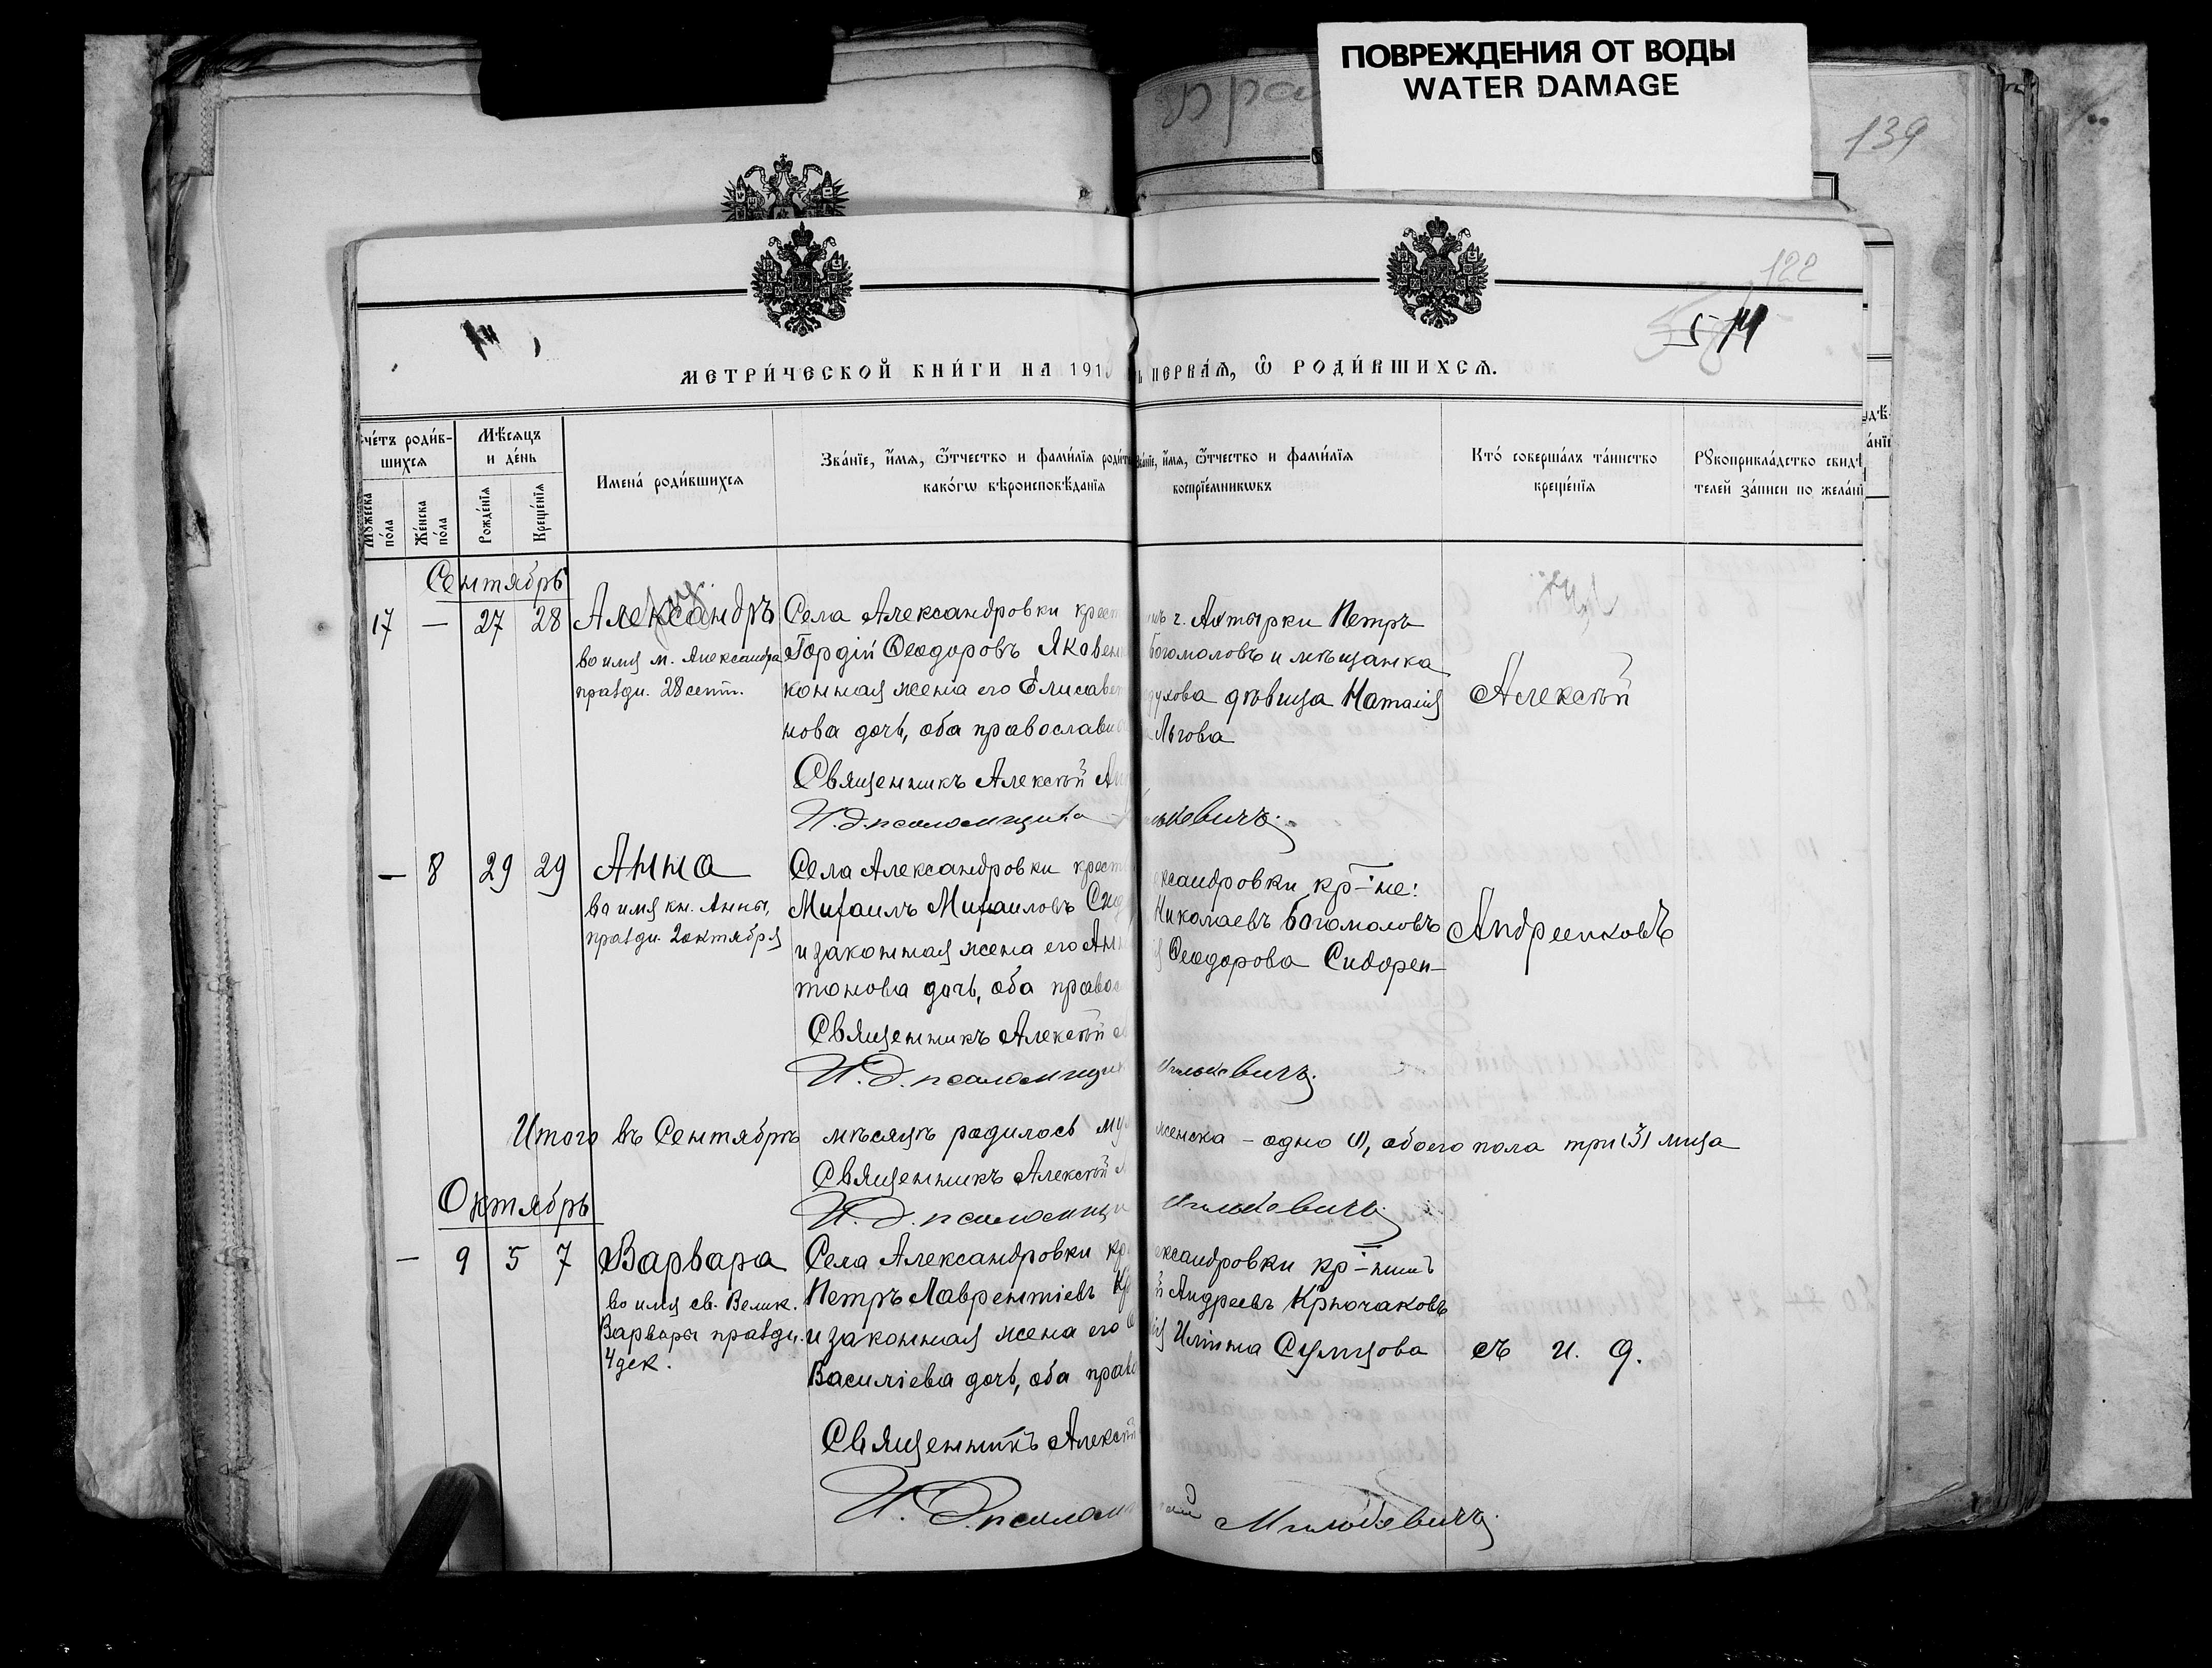 ПОВРЕЖДЕНИЯ ОТ ВОДЫ
WATER DAMAGE
139
122
МЕТРИ́ЧЕСКОЙ КНИ́ГИ НА 191
ПЕРВАѦ, Ѿ РОДИ́ВШИХСѦ.
че́тъ роди́в-
шихсѧ
Мѣ́сяцъ
и де́нь
Имена́ роди́вшихсѧ
Зва́нїе, и́мѧ, ѿтчество и фами́лїѧ роди́т
како́гѡ вѣроисповѣ́данїѧ
зва́нїе, и́мѧ, ѿтчество и фами́лїѧ
воспрїе́мникѡвъ
Кто́ соверша́лъ та́инство
креще́нїѧ
Рꙋкоприкла́дство свидѣ
телей за́писи по жела́нї
Мꙋ́жеска
по́ла
Же́нска
по́ла
Рожде́нїѧ
Креще́нїѧ
Сентябрь
17 — 27 28 Александръ
во имя м. Александра
праздн. 28 сент.
Села Александровки крест
Гордій Ѳеодоровъ Яковен
конная жена его Елисавет
нова дочь, оба православн
Священникъ Алексѣй Ан
И. д. псаломщика
г. Ахтырки Петръ
Богомоловъ и мѣщанка
духова дѣвица Наталія
Льгова
Алексѣй
— 8 29 29 Анна
во имя кн. Анны,
праздн. 2 октября
Села Александровки крест
Михаилъ Михаиловъ Сид
и законная жена его Анн
тонова дочь, оба правос
Священникъ Алексѣй
И. д. псаломщик
ксандровки кр-не:
Николаевъ Богомоловъ
Ѳеодорова Сидорен-
Андреенковъ
Итого въ Сентябрѣ мѣсяцѣ родилось му
женска – одно (1), обоего пола три (3) лица
Священникъ Алексѣй
И. д. псаломщи
Октябрь
— 9 5 7 Варвара
во имя св. Велик.
Варвары праздн.
4 дек.
Села Александровки кр
Петръ Лаврентіевъ Кр
и законная жена его
Василіева дочь, оба право
Священникъ Алексѣй
И. д. псалом
ександровки кр-нинъ
й Андреевъ Крючаковъ
Ильина Сумцова
съ и. д.
Милькевичъ